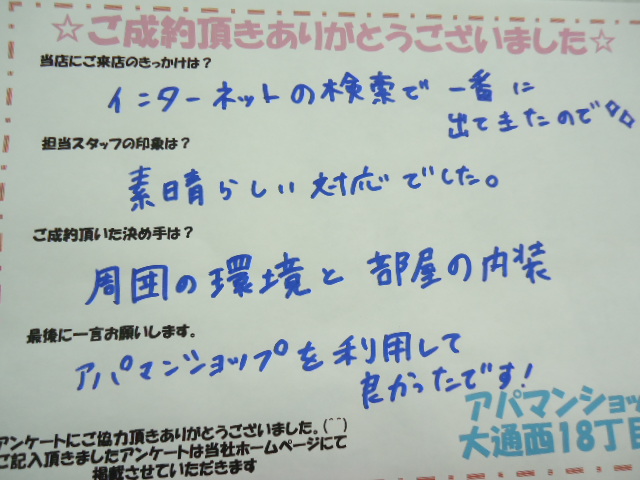 ☆ご成約頂きありがとうございました☆
当店にご来店のきっかけは？
インターネットの検索で 一番に
出てきたので
担当スタッフの印象は？
素晴らしい対応でした。
ご成約頂いた決め手は？
周囲の環境と部屋の内装
最後に一言お願いします。
アパマンショップを利用して
良かったです！
アパマンショッ
大通西18丁目
アンケートにご協力頂きありがとうございました。(^^)
ご記入頂きましたアンケートは当社ホームページにて
掲載させていただきます